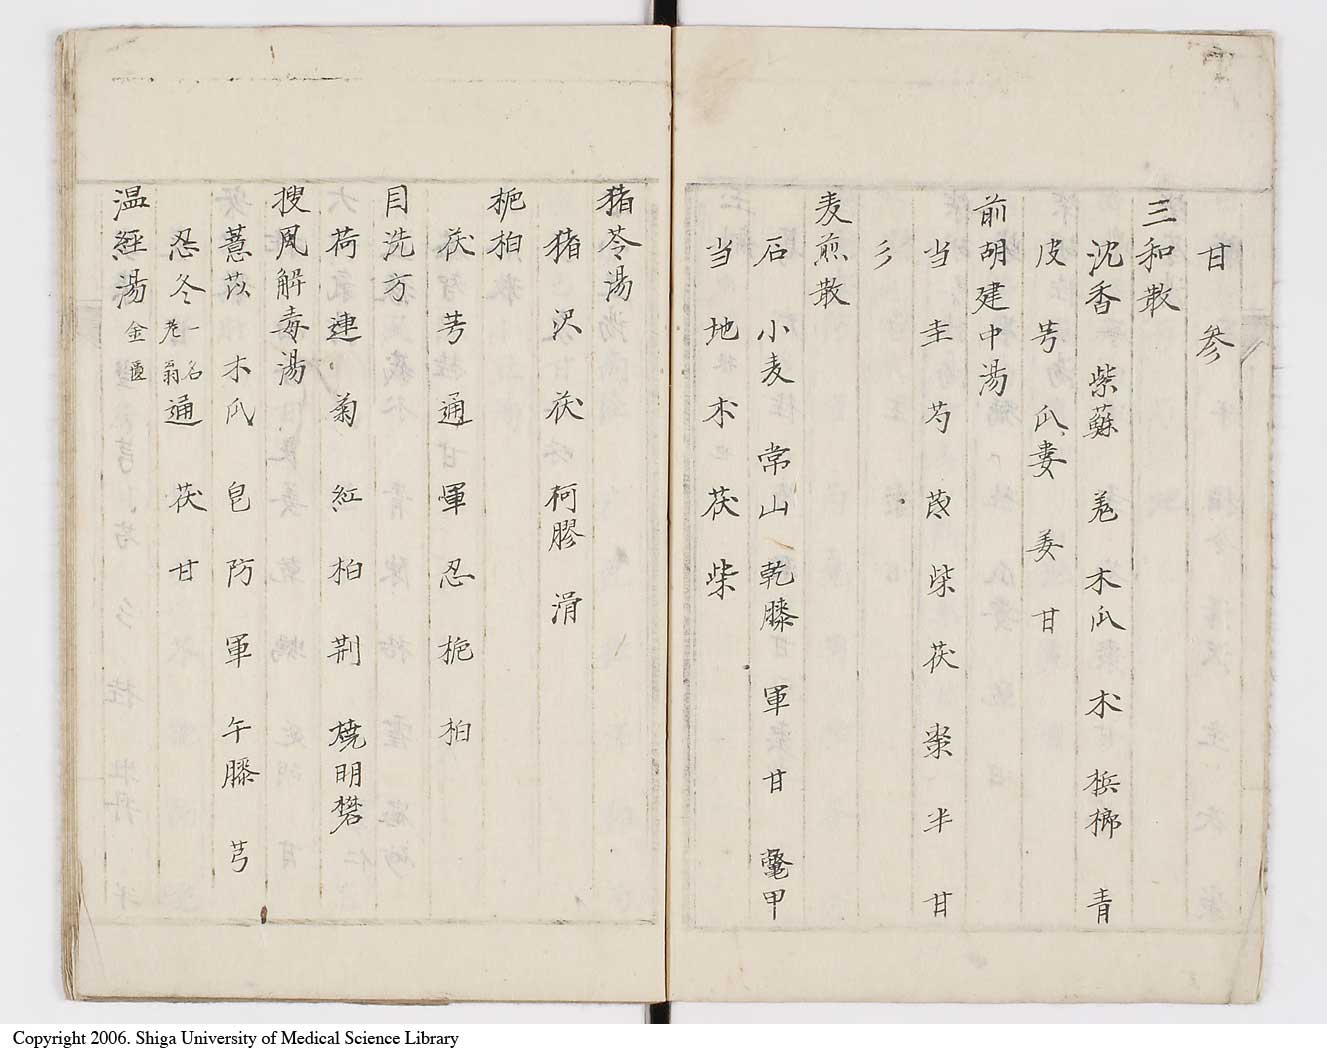 甘 参
三和散
沈香 紫蘇 羗 木瓜 朮 梹榔 青
皮 芎 瓜蔞 姜 甘
前胡建中湯
当 圭 芍 茋 柴 茯 棗 半 甘
彡
麦煎散
石 小麦 常山 乾膝 軍 甘 鼈甲
当 地 朮 茯 柴
猪苓湯
猪 沢 茯 柯膠 滑
枙柏
茯 芎 通 軍 忍 枙 柏
目洗方
荷 連 菊 紅 柏 荆 焼明礬
搜風解毒湯
薏苡 木瓜 皂 防 軍 午膝 芎
忍冬 一名老翁 通 茯 甘
温經湯 金匱
Copyright 2006. Shiga University of Medical Science Library